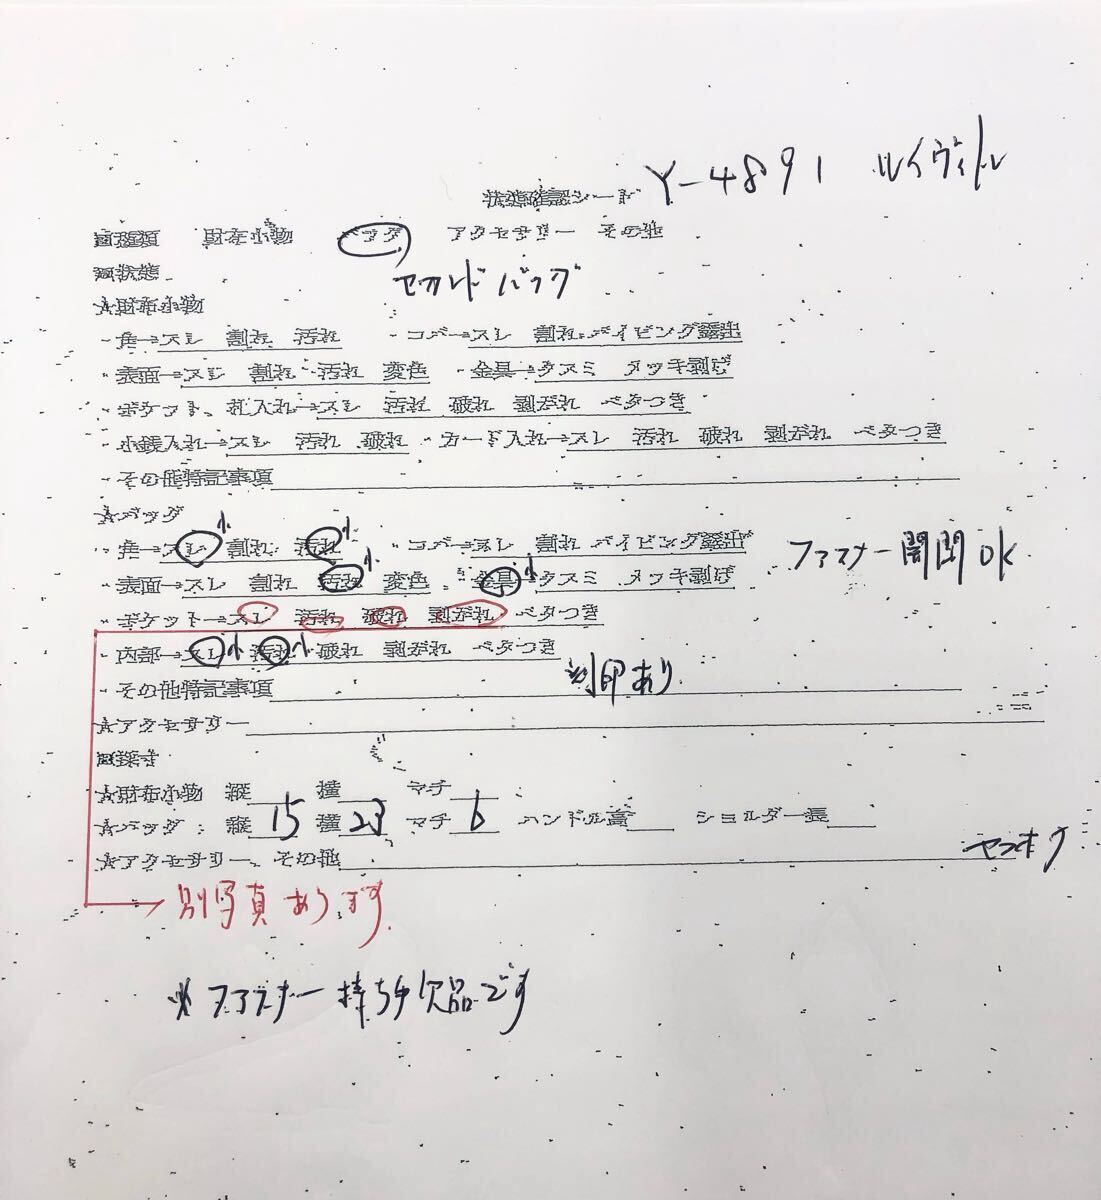 Y-4891 ルイヴィトン
状態確認シード
■種類 財布小物 バッグ アクセサリー その他
■状態
セカンドバッグ
★財布小物
・角→スレ 割れ 汚れ ・コバ→スレ 割れ パイピング露出
・表面→スレ 割れ 汚れ 変色 ・金具→クスミ メッキ剥げ
・ポケット、札入れ→スレ 汚れ 破れ 剥がれ ベタつき
・小銭入れ→スレ 汚れ 破れ ・カード入れ→スレ 汚れ 破れ 剥がれ ベタつき
・その他特記事項
★バッグ
・角→スレ小 割れ 汚れ小 ・コバ→スレ 割れ パイピング露出
ファスナー開閉OK
・表面→スレ 割れ 汚れ小 変色 ・金具小→クスミ メッキ剥げ
・ポケット→スレ 汚れ 破れ 剥がれ ベタつき
・内部→スレ小 汚れ小 破れ 剥がれ ベタつき
刻印あり
・その他特記事項
★アクセサリー
■採寸
★財布小物 縦 横 マチ
★バッグ:縦 15 横 23 マチ 6 ハンドル高 ショルダー長
★アクセサリー、その他
→別写真あります。
※ファスナー持ち手欠品です